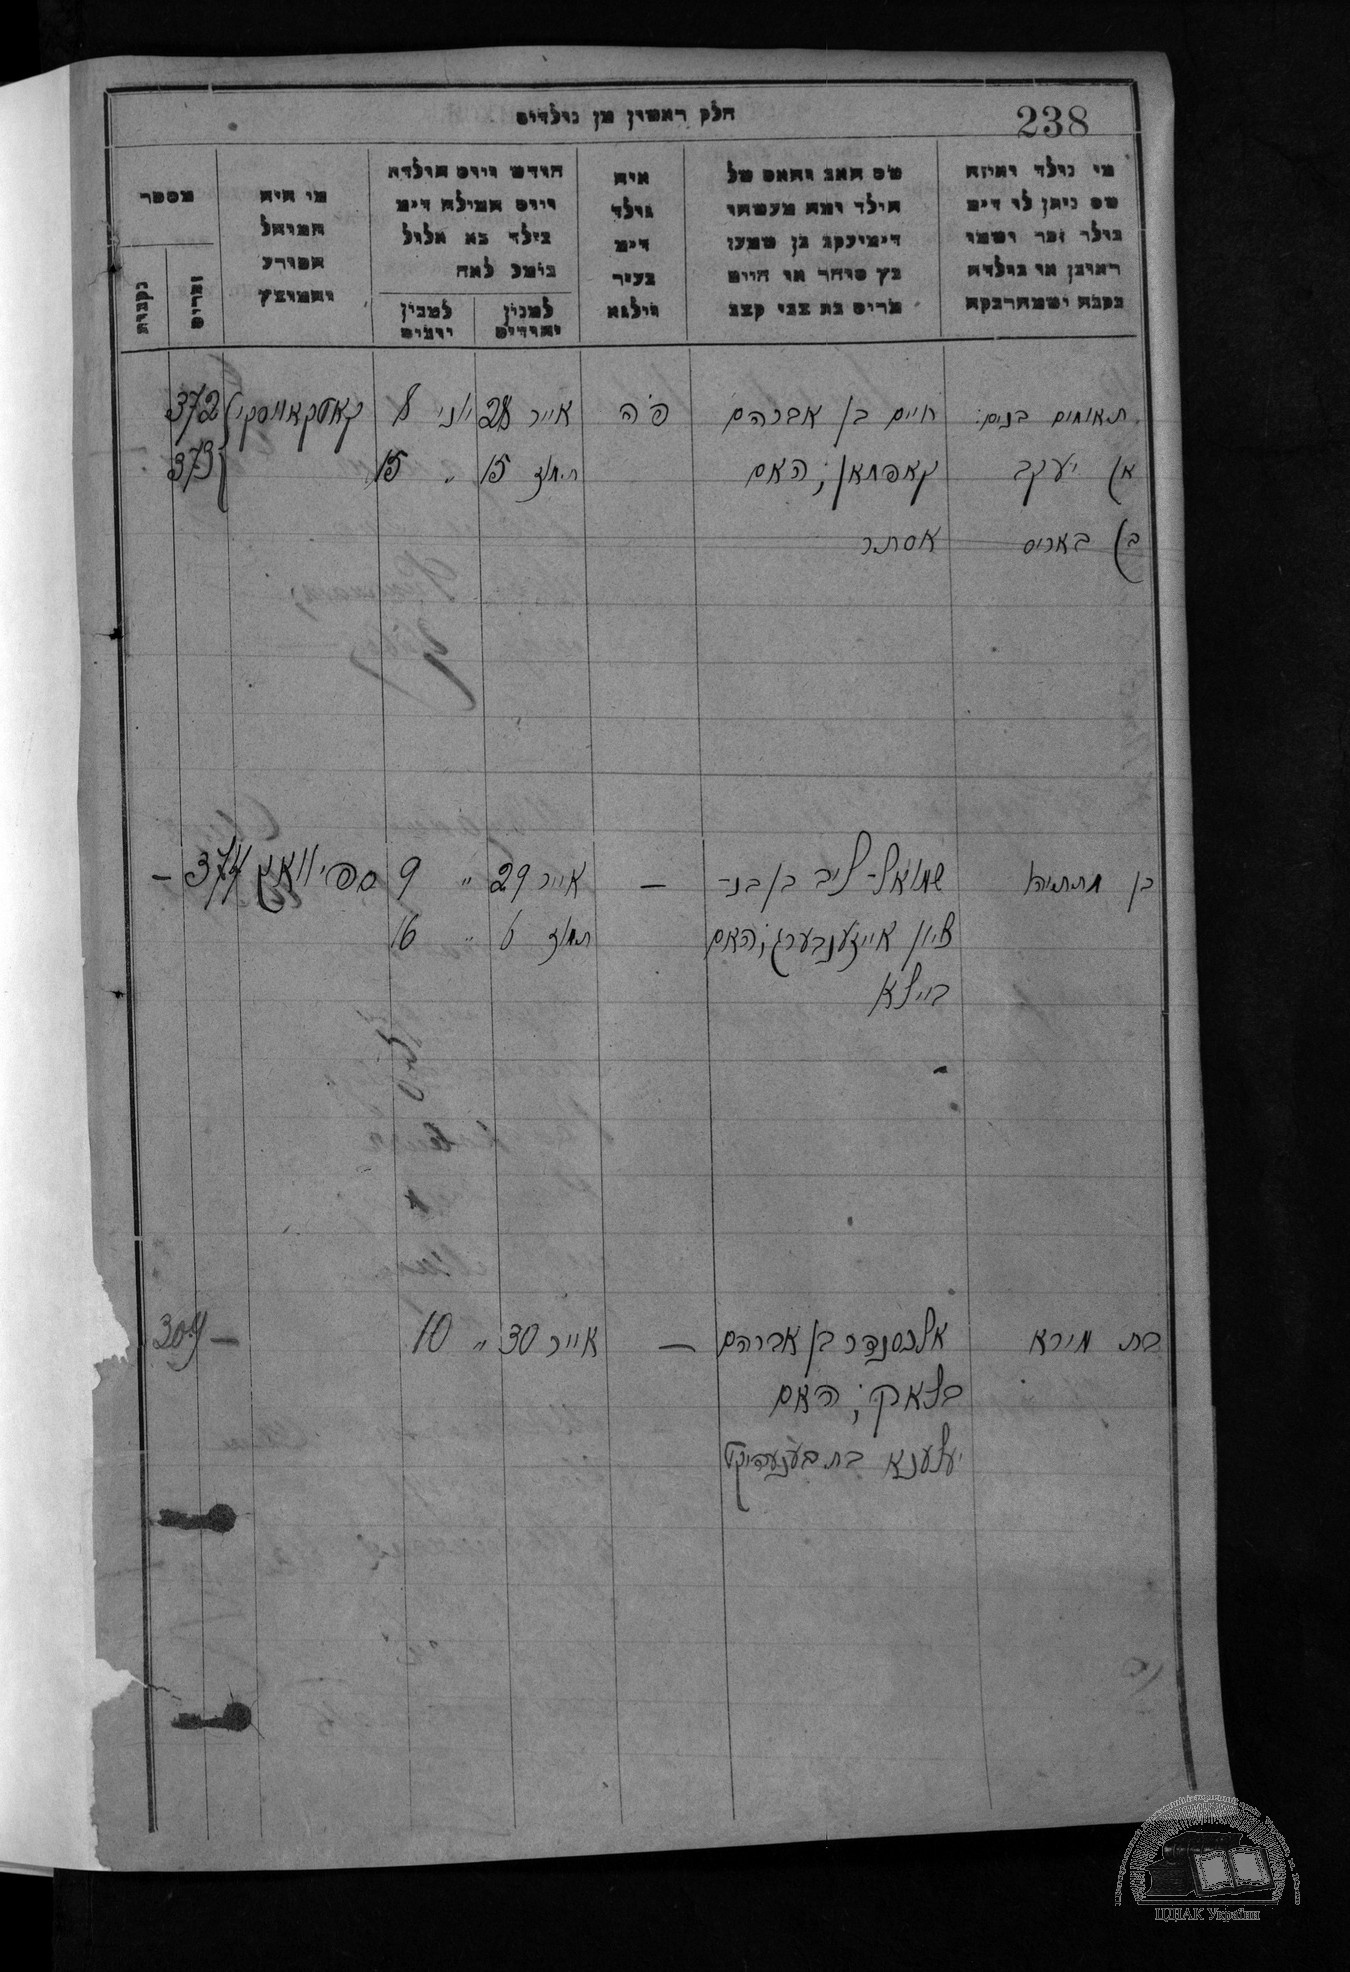 238
חלק ראשון מן נולדים
מי נולד ואיזה
שם ניתן לו דימ
נולד זכר ושמו
ראובן או נולדה
נקבה ושמה רבקה
שם האב והאם של
הילד ומה מעשהו
דימ יעקב בן שמעון
כץ סוחר או חיים
מרים בת צבי קצב
איה
נולד
דימ
בעיר
ווילנא
חודש ויום הולדה
ויום המילה דימ
בולד בא אלול
נימל לאח
למנין
יהודים
למנין
יונים
מי היה
המוהל
הפורע
והמוצץ
מספר
זכרים
נקבות
תאומים בנים: חיים בן אברהם פ"ה אייר 28 יוני 8 קאטקאווסקי 372
א) יעקב קאפמאן; האם תמוז 15 " 15 373
ב) באריס אסתר
בן מתתיהו שמואל-ליב בן בן- — אייר 29 " 9 ספיוואק 374 —
ציון אייזענבערג; האם תמוז 6 " 16
ביילא
בת מירא אלכסנדר בן אברהם — אייר 30 " 10 — 304
בלאק; האם
יעלענא בת בענעדיקט
ЦДІАК України